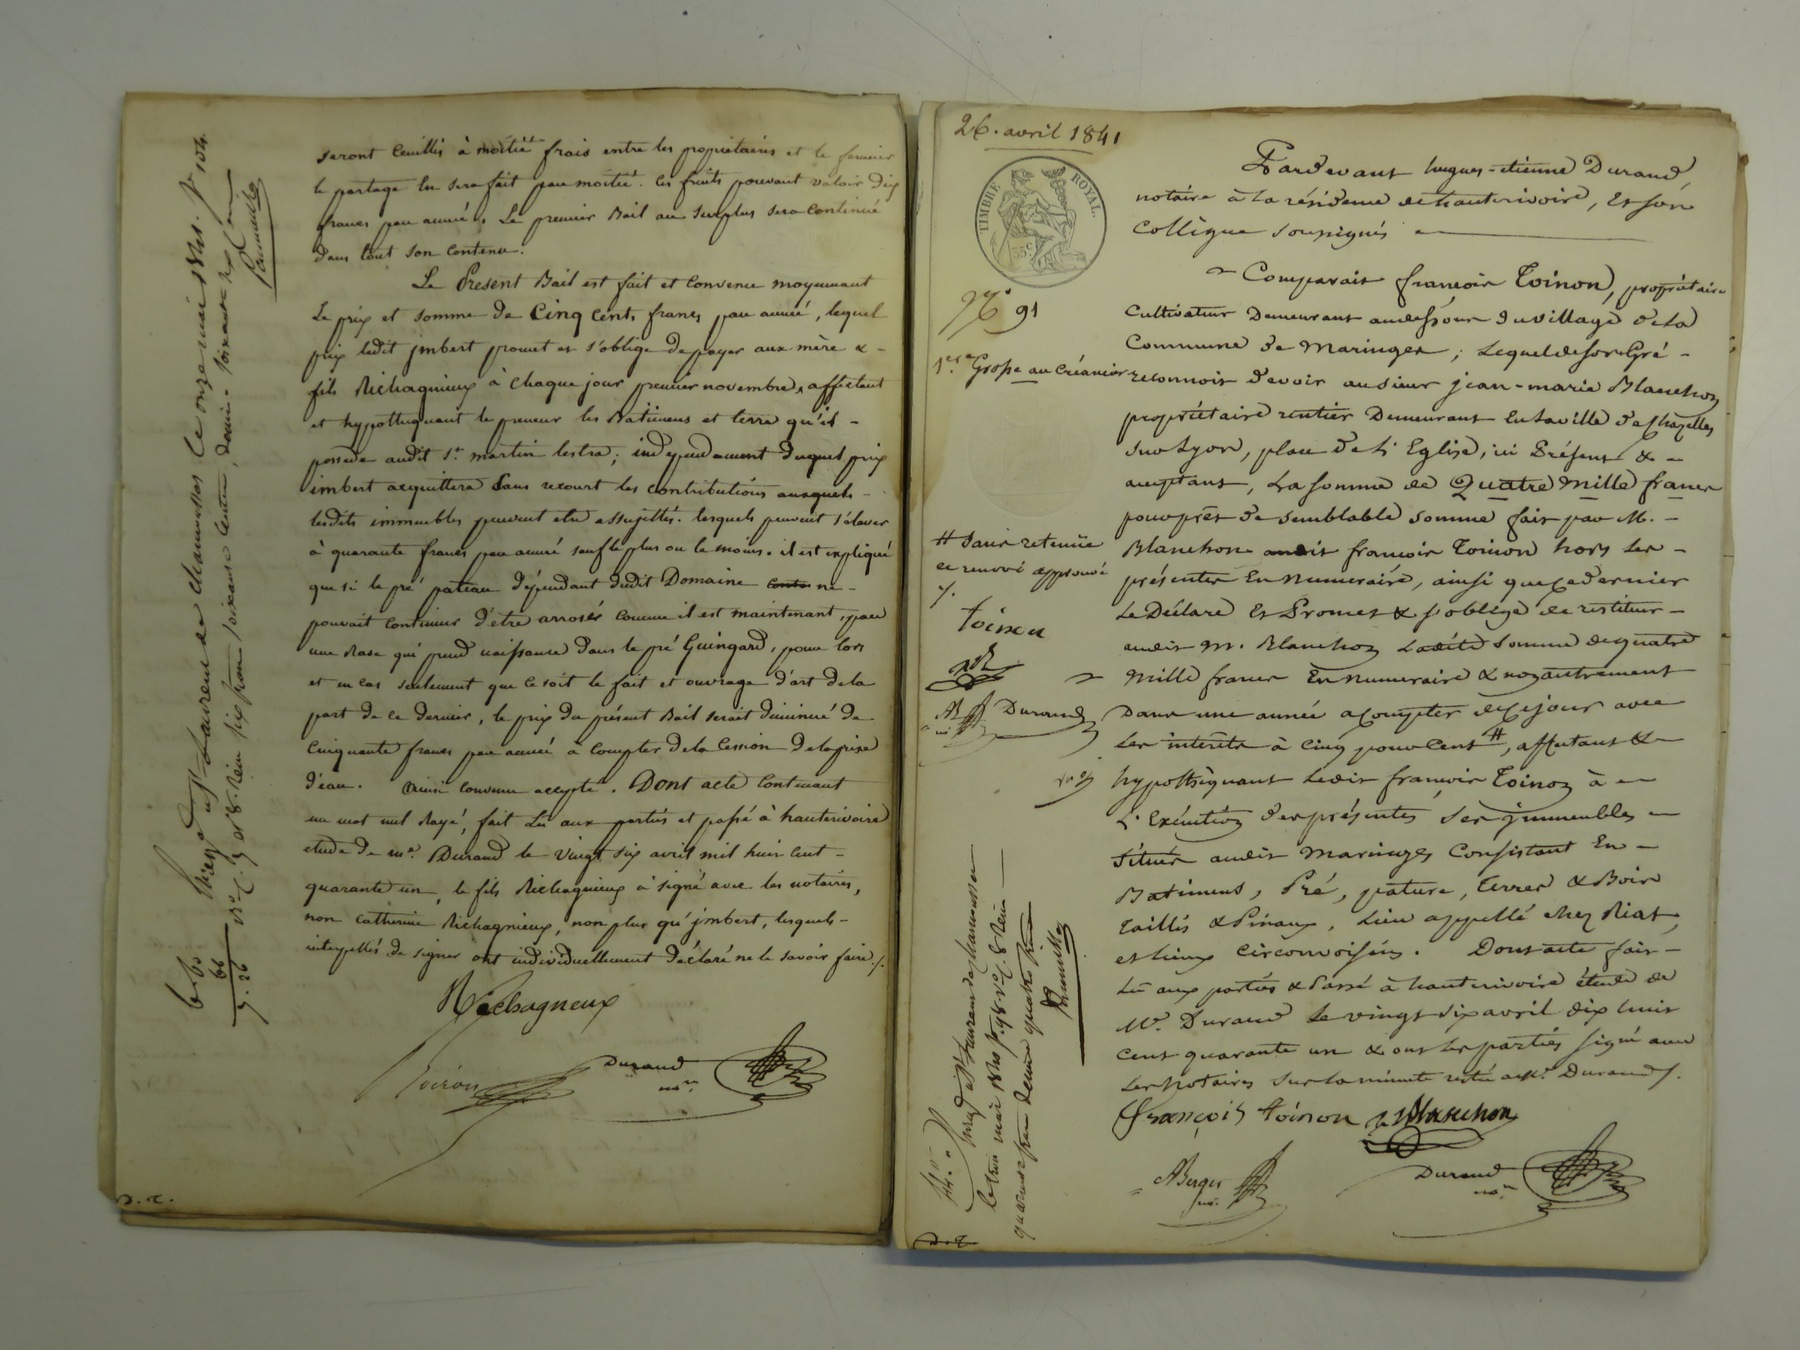 seront Ceuillis à moitié frais entre les propriétaires et le fermier
le partage en sera fait par moitié. Ces fruits pouvant valoir dix
francs par année. Le premier Bail au surplus sera Continué
dans tout son Contenu.
Le Present Bail est fait et Convenu moyennant
Le prix et somme de Cinq Cents francs par année, lequel
prix ledit jmbert promet et s'oblige de payer aux mère &
fils Richagnieux à Chaque jour premier novembre, affectant
et hypothequant le preneur les Batimens et terre qu'il
possede audit St. martin lestra; independament duquel prix
imbert acquittera Sans recourt les contributions auxquels
lesdits immeubles peuvent etre assujettis. lesquels peuvent s'élever
à quarante francs par année sauf le plus ou le moins. il est expliqué
que si le pré pateau dépendant dudit Domaine ne
pouvait Continuer d'être arrosér Comme il est maintenant, par
une Rase qui prend naissance dans le pré Guingard, pour lors
et en cas seulement que ce soit le fait et ouvrage d'art de la
part de ce dernier, le prix du présent Bail serait diminué de
Cinquante francs par année à Compter de la Cession de la prise
d'eau. Ainsi Convenu accepté. Dont acte Contenant
un mot nul Rayé, fait Lu aux parties et passé à hauterivoire
etude de me. Durand le vingt six avril mil huit cent
quarante un, le fils Richagnieux a signé avec les notaires,
non Catherine Richagnieux, non plus qu'jmbert, lesquels
interpellés de signer ont individuellement déclaré ne le savoir faire./.
Richagneux
Durand
nore
6 60
66
7.26
D.R.
26. avril 1841
TIMBRE ROYAL.
35 c
91
1ere Grosse au Créancier
Pardevant hugues-étienne Durand,
notaire à la résidence de hauterivoire, Et son
Collègue soussignés
Comparait françois Toinon, propriétaire
Cultivateur Demeurant audessous du village de la
Commune de Maringes; Lequel de son Gré
reconnoit devoir au sieur jean-marie Blanchon
propriétaire rentier Demeurant En la ville de Chazelles
sur Lyon, place de L'Eglise, ici Présent &
acceptant, La somme de Quatre Mille francs
pour prêt de semblable somme fait par M.
Blanchon audit françois Toinon hors les
présentes En numeraire, ainsi que ce dernier
Le Déclare Et Promet & s'oblige de restituer
audit M. Blanchon Ladite somme de quatre
Mille francs En numeraire & non autrement
Dans une année acompter de ce jour avec
Les intérêts à cinq pour cent #, affectant &
hypothèquant Ledit françois Toinon à
L'Exécution des présentes, Ses jmmeubles
situés audit Maringes Consistant En
Batimens, Pré, pature, Terres & Bois
Taillis & Pinaux, Lieu appellé chez Riat,
et Lieux circonvoisins. Dont acte fait
Lu aux parties & Passé à hauterivoire étude de
Me. Durand Le vingt six avril dix huit
cent quarante un & ont Les parties signé avec
Les Notaires sur la minute restée a Me. Durand /.
# sans retenüe
ce renvoi approuvé
/.
toinon
Durand
françois toinon Blanchon
ABerger
no.
Durand
nore